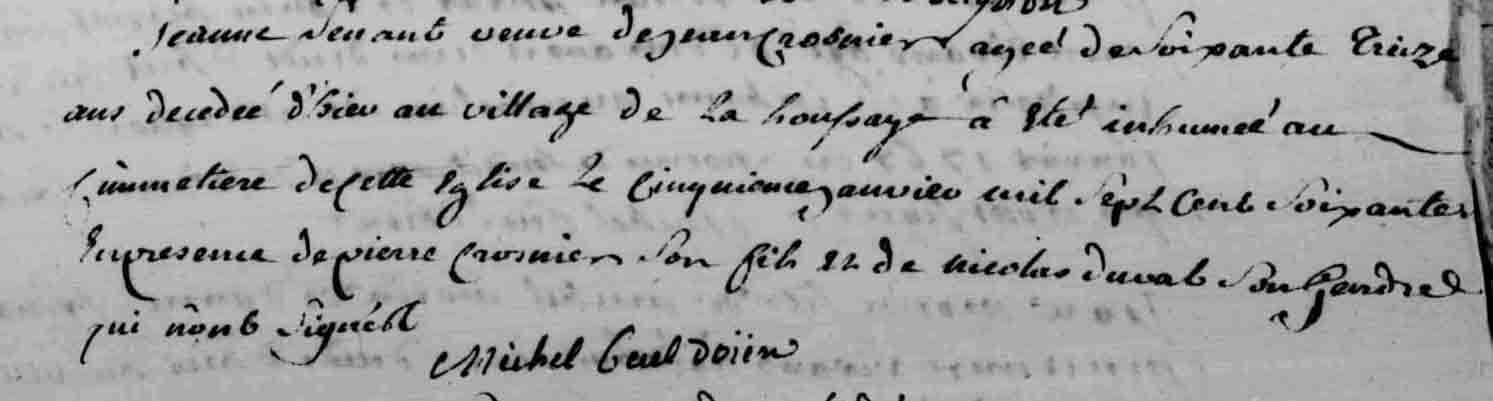 jeanne Senant veuve de jean Crosnier agée de Soixante treize
ans decedeé d'hier au village de La houssaye â Eté inhumeé au
Cimmetiere de Cette Eglise Le Cinquieme janvier mil Sept Cent Soixante
En presence de pierre Crosnier Son fils Et de nicolas duval Son Gendre
qui n'ont Signés
Michel doïen